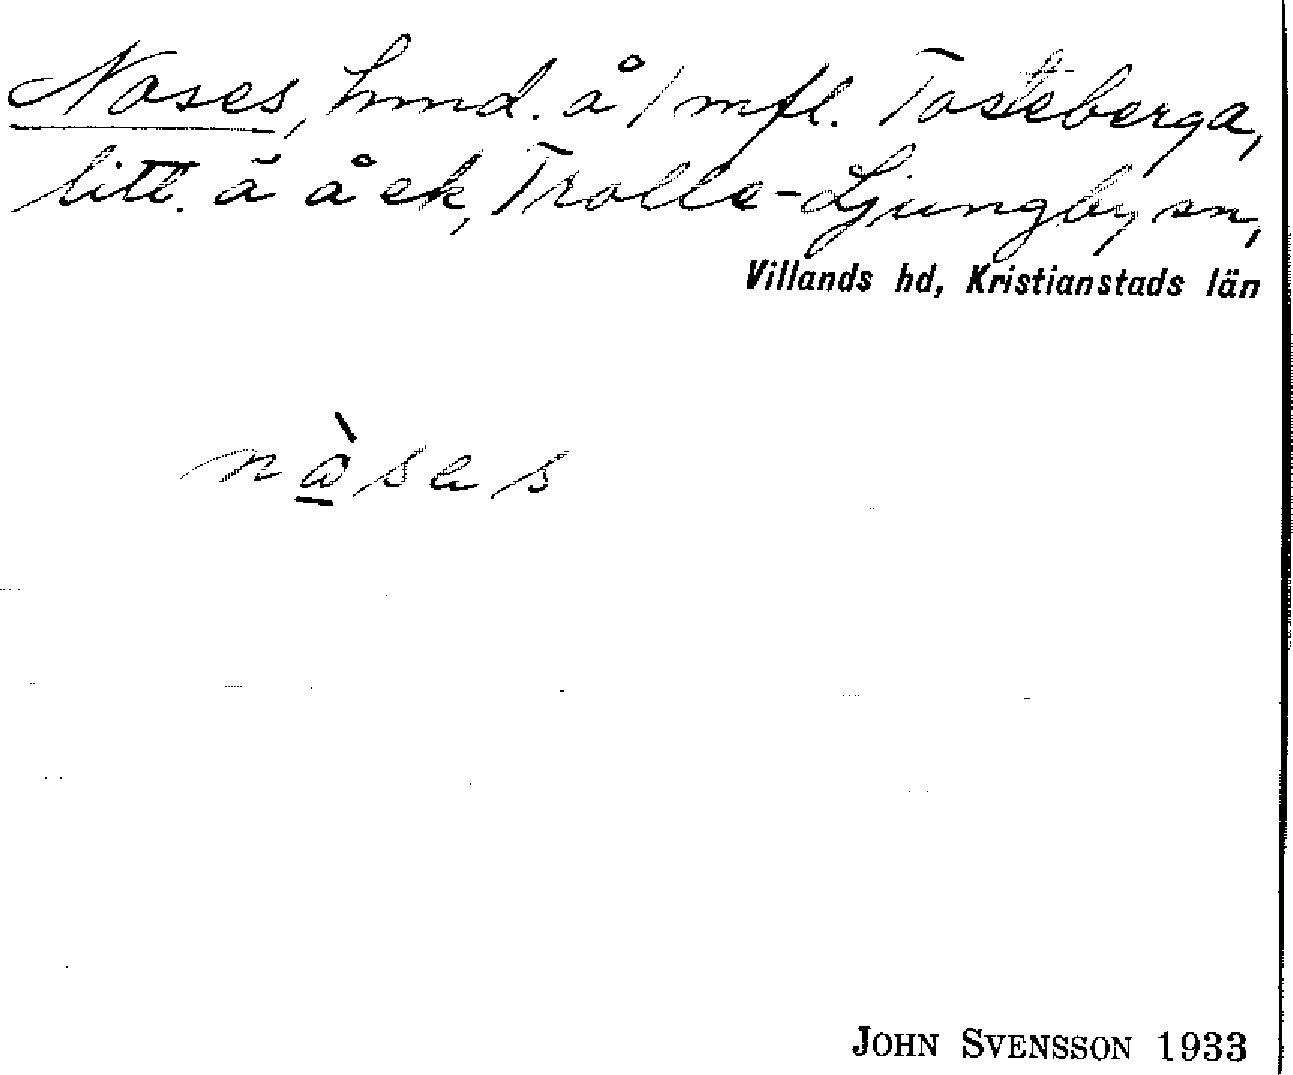 Nases, hmd. å 1 mfl. Tosteberga,
litt. ä å ek, Trolle-Ljungby sn,
Villands hd, Kristianstads län
nàses
JOHN SVENSSON 1933